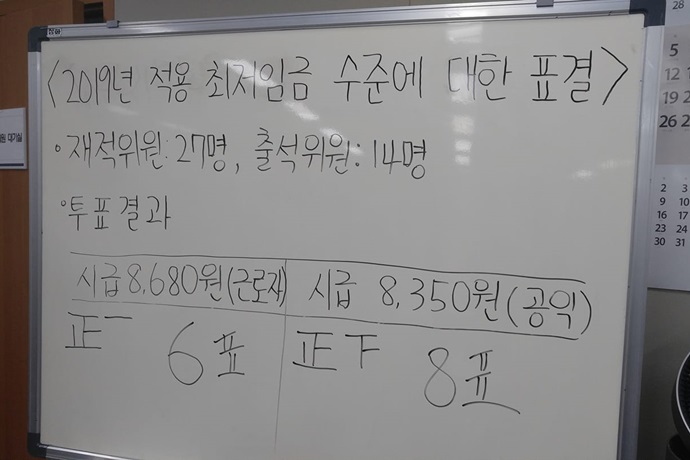 <2019년 적용 최저임금 수준에 대한 표결>
·재적위원: 27명, 출석위원: 14명
·투표결과
시급 8,680원(근로자) 시급 8,350원(공익)
正一 6표 正下 8표
28
5
12
19 2
26 2
2 3
9 10
16 17
23 24
30 31